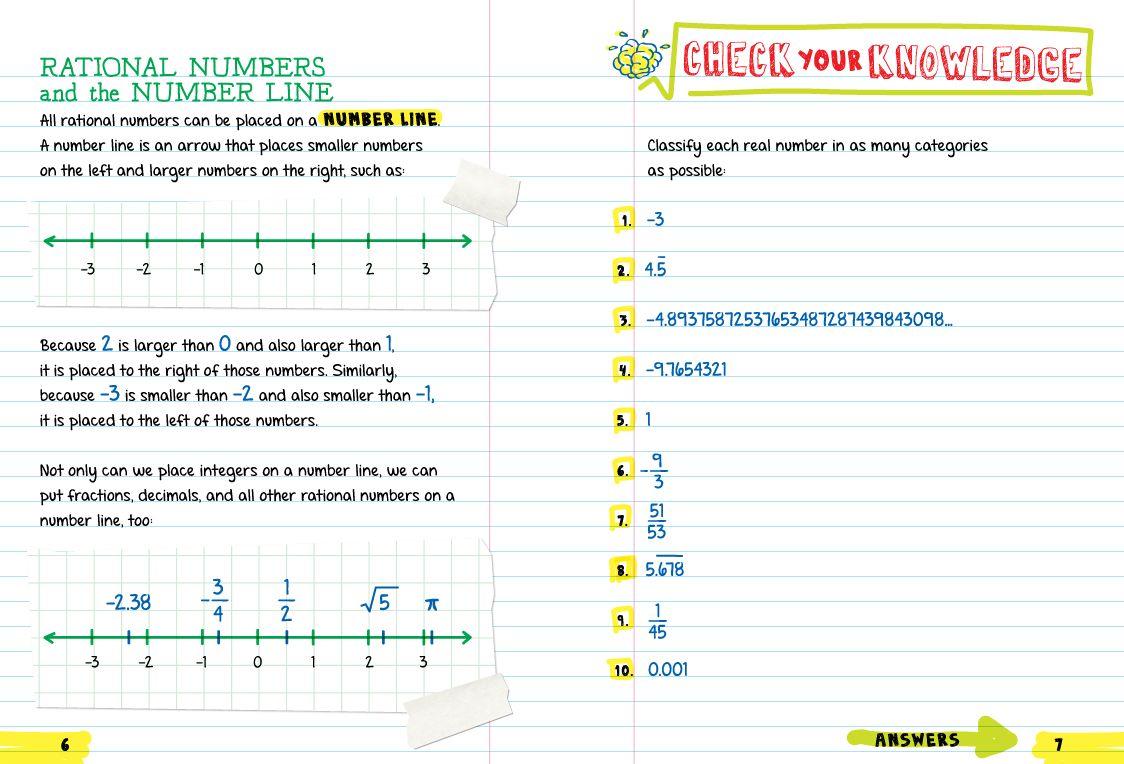 RATIONAL NUMBERS
and the NUMBER LINE
All rational numbers can be placed on a NUMBER LINE.
A number line is an arrow that places smaller numbers
on the left and larger numbers on the right, such as:
-3 -2 -1 0 1 2 3
Because 2 is larger than 0 and also larger than 1,
it is placed to the right of those numbers. Similarly,
because -3 is smaller than -2 and also smaller than -1,
it is placed to the left of those numbers.
Not only can we place integers on a number line, we can
put fractions, decimals, and all other rational numbers on a
number line, too:
-2.38 -3/4 1/2 √5 π
-3 -2 -1 0 1 2 3
6
CHECK YOUR KNOWLEDGE
Classify each real number in as many categories
as possible:
1. -3
2. 4.5̅
3. -4.89375872537653487287439843098...
4. -9.7654321
5. 1
6. -9/3
7. 51/53
8. 5.6̅7̅8̅
9. 1/45
10. 0.001
ANSWERS
7